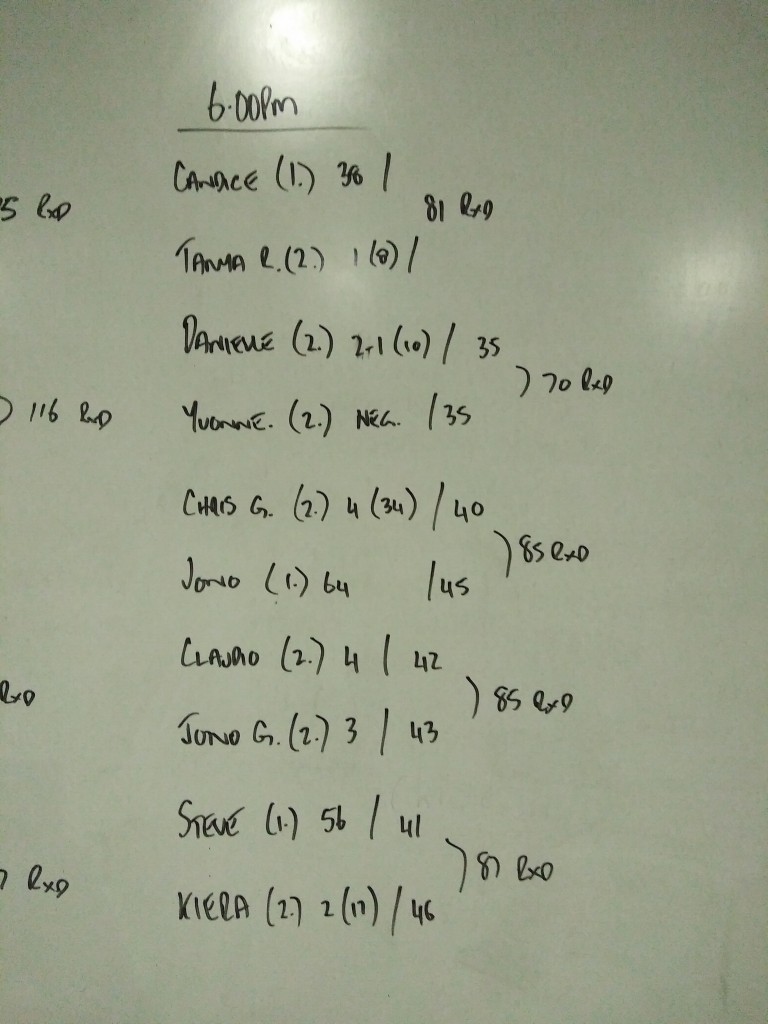 6.00Pm
CANDACE (1.) 38 /
5 RxD
81 RxD
TANYA R. (2.) 1 (8) /
DANIELLE (2.) 2+1 (10) / 35
) 70 RxD
) 116 RxD
YVONNE. (2.) NEG. / 35
CHRIS G. (2.) 4 (34) / 40
) 85 RxD
JONO (1.) 64 / 45
CLAUDIO (2.) 4 / 42
RxD
) 85 RxD
JONO G. (2.) 3 / 43
STEVE (1.) 56 / 41
) 87 RxD
7 RxD
KIERA (2.) 2 (17) / 46